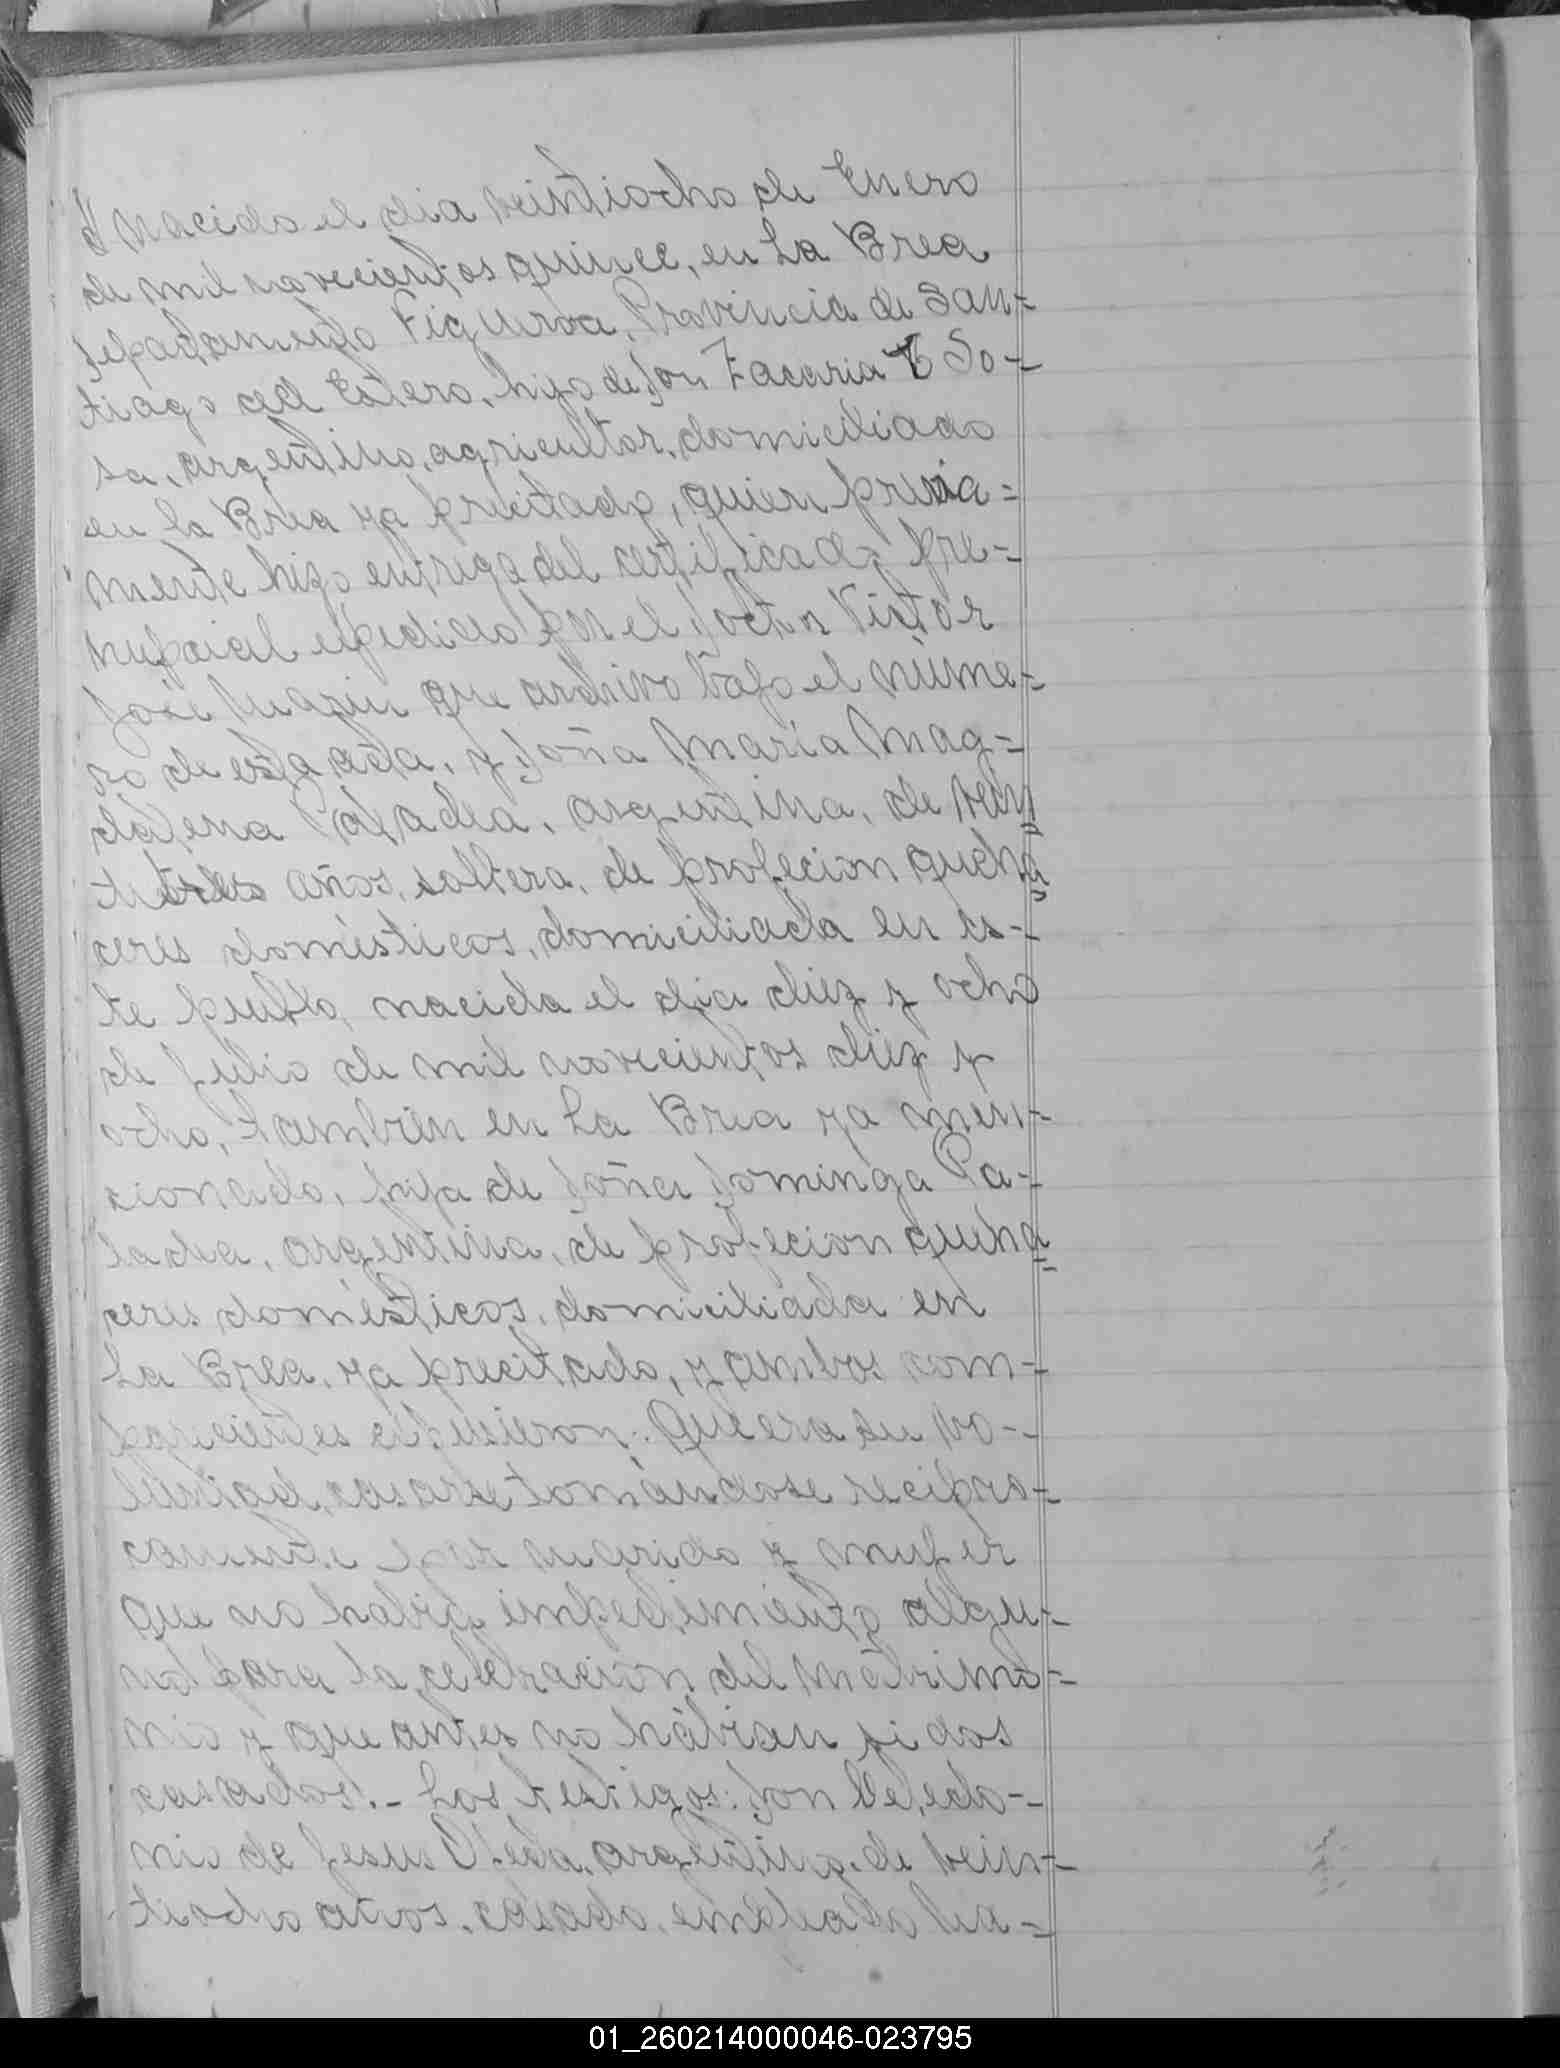 nacido el dia veintiocho de Enero
de mil novecientos quince, en La Brea
Departamento Figueroa, Provincia de San=
tiago del Estero, hijo de Don Zacaria So=
sa, argentino, agricultor, domiciliado
en la Brea ya precitado, quien previa=
mente hizo entrega del certificado pre=
nupcial expedido por el Doctor Victor
José que archivo bajo el núme=
ro de esta acta, y Doña María Mag=
dalena Paladea, argentina, de vein
titres años, soltera, de profecion queha
ceres domésticos, domiciliada en es=
te pueblo, nacida el dia diez y ocho
de Julio de mil novecientos diez y
ocho, también en La Brea ya men=
cionado, hija de Doña Dominga Pa=
ladea, argentina, de profecion queha
ceres domésticos, domiciliada en
La Brea, ya precitado, y ambos com=
parecientes Que era su vo=
luntad, casarse tomándose recipro=
camente por marido y mujer
que no habia impedimento algu=
no para la celebracion del matrimo=
nio y que antes no habian sidos
casados.- Los testigos: Don Celedo=
nio de Jesus Ojeda, argentino, de vein=
tiocho años, casado, empleado
01_260214000046-023795